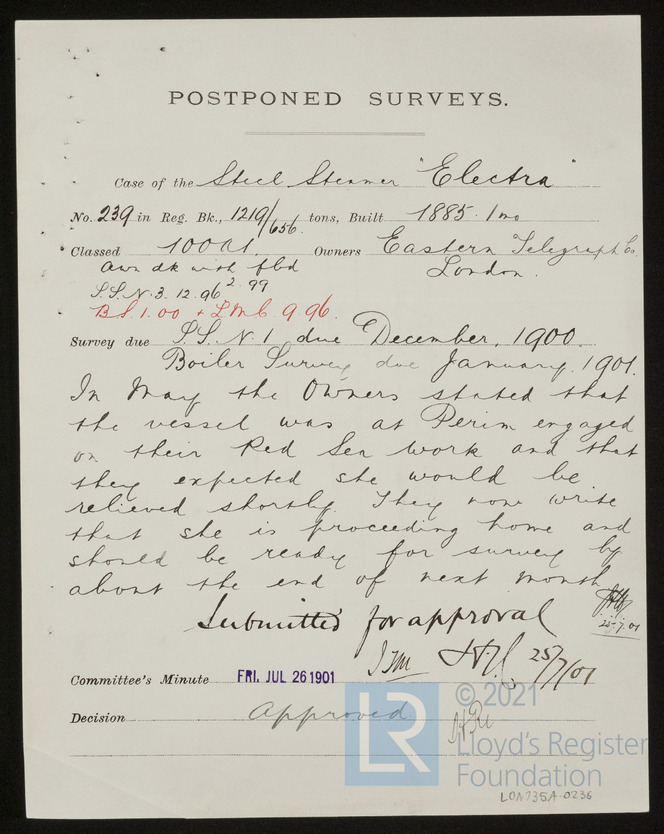 POSTPONED SURVEYS.
Case of the Steel Steamer "Electra"
No. 239 in Reg. Bk., 1219/656 tons, Built 1885. 1mo
Classed 100A1. Owners Eastern Telegraph Co.
awn dk with fbd London.
S.S.No.3. 12.96 2.99
BS 1.00 + LMC 9 96.
Survey due S.S.No.1 due December, 1900.
Boiler Survey due January, 1901.
In May the Owners stated that
the vessel was at Perim engaged
on their Red Sea work and that
they expected she would be
relieved shortly. They now write
that she is proceeding home and
should be ready for survey by
about the end of next month
25.7.01
Submitted for approval
25/7/01
Committee's Minute FRI. JUL 26 1901
Decision Approved
LR
© 2021
Lloyd's Register
Foundation
LON735A-0236